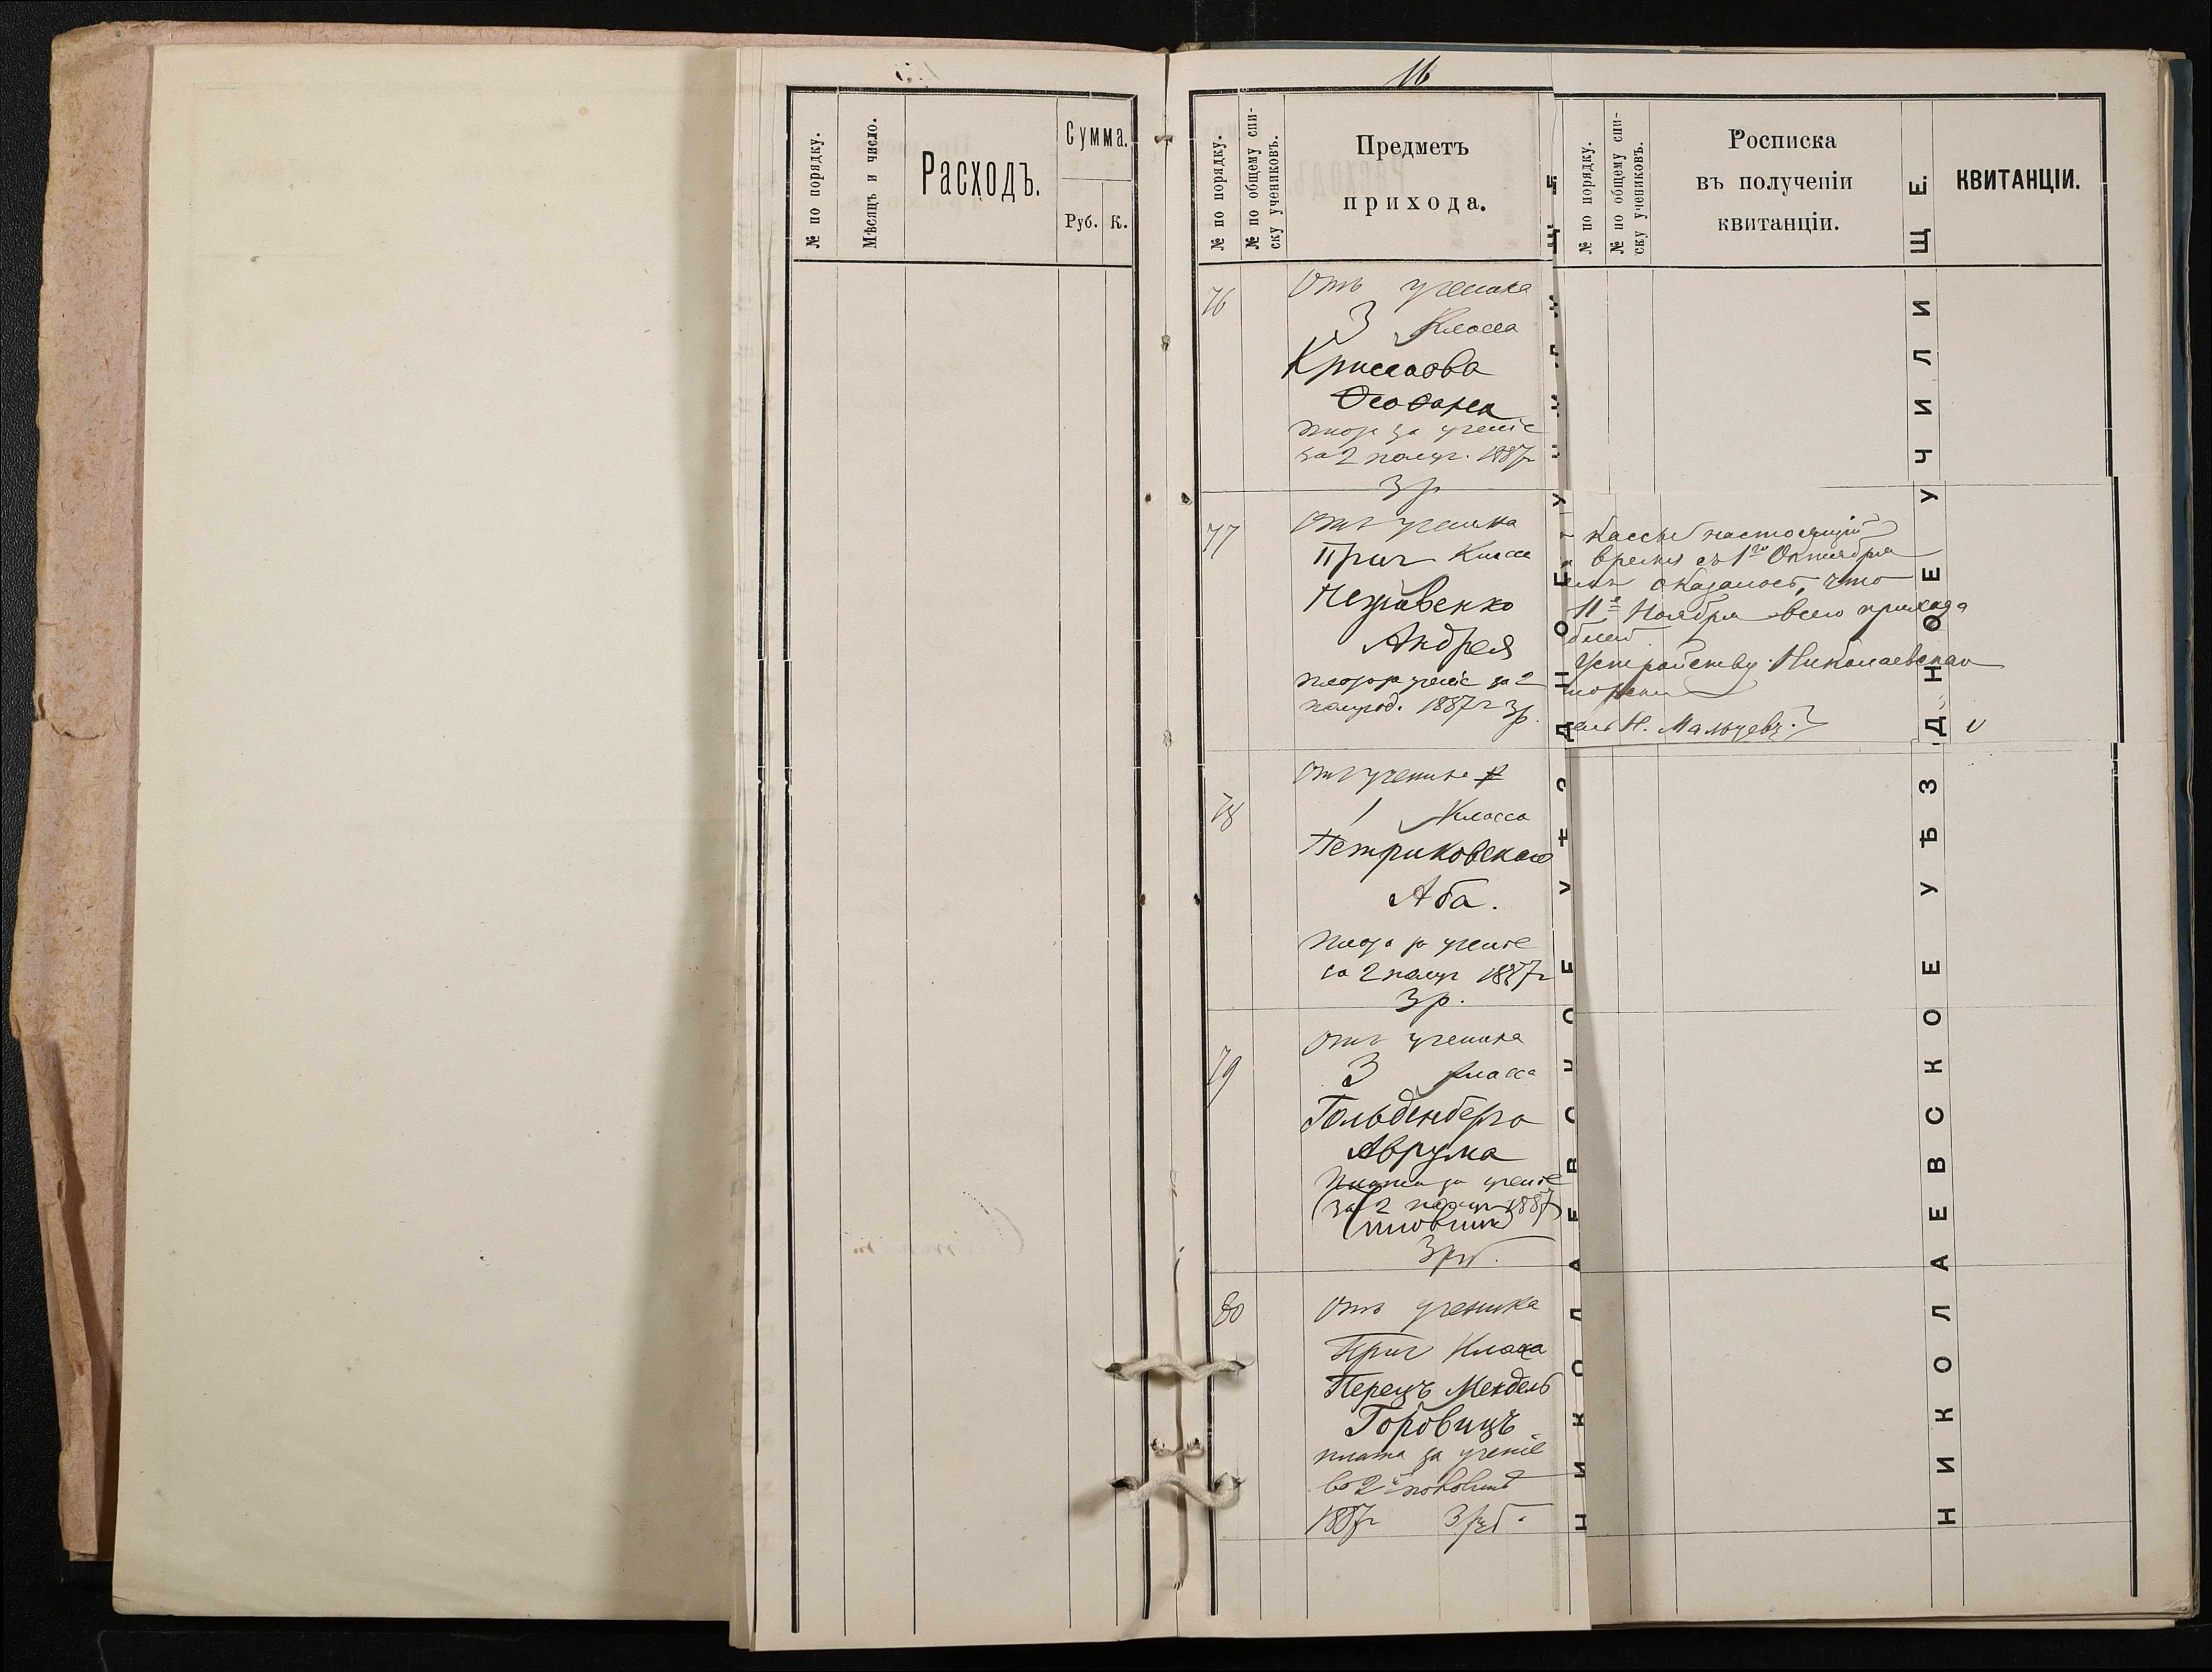 16
№ по порядку.
Мѣсяцъ и число.
Расходъ.
Сумма.
Руб.
К.
№ по порядку.
№ по общему спи-
ску учениковъ.
Предметъ
прихода.
76
Отъ ученика
3 Класса
Ѳеофана
за 2 полуг. 1887г
3 р
77
Отъ ученика
Приг Класса
Андрея
за 2
полугод. 1887 г 3 р.
78
Отъ ученика
1 Класса
Петриковскаго
Аба.
Плата за ученіе
за 2 полуг 1887г
3 р.
79
Отъ ученика
3 Класса
Гольденберга
Аврума
Плата за ученіе
за 2 1887
3 руб.
80
Отъ ученика
Приг Класса
Перецъ Мендель
Горовицъ
плата за ученіе
во 2й половинѣ
1887г 3 руб.
№ по порядку.
№ по общему спи-
ску учениковъ.
Росписка
въ полученіи
квитанціи.
КВИТАНЦІИ.
кассы настоящій
время съ 1го Октября
оказалось, что
11е Ноября всего прихода
блей
Устройству Николаевскаго
ель Н. Мальцевъ.
НИКОЛАЕВСКОЕ УѢЗДНОЕ УЧИЛИЩЕ.